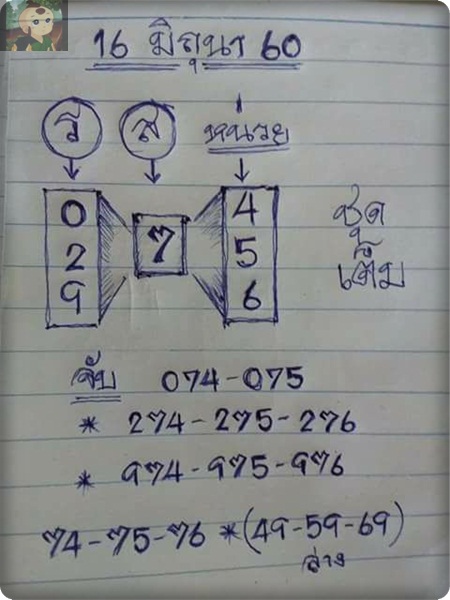 16 มิถุนา 60
ร ส หน่วย
0 4
7
2 5 ชุด
9 6 เต็ม
จับ 074-075
* 274-275-276
* 974-975-976
74-75-76 *(49-59-69)
ล่าง